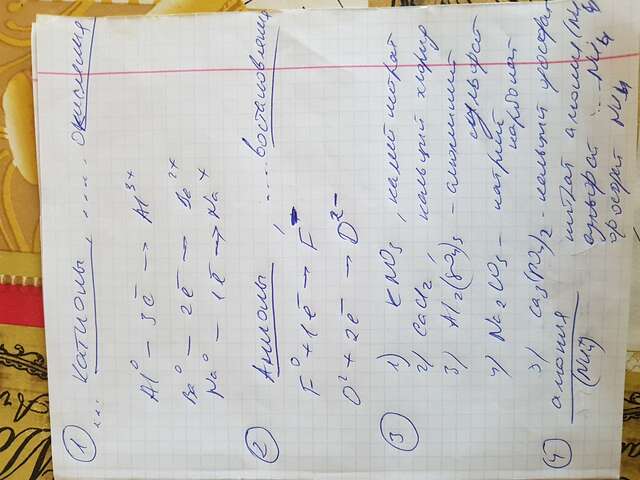 1 ... катионы, .... окисления
Al⁰ – 3ē → Al³⁺
Ba⁰ – 2ē → Ba²⁺
Na⁰ – 1ē → Na⁺
2 Анионы, .... востановления
F⁰ + 1ē → F⁻
O² + 2ē → O²⁻
3 1) KNO₃, калий нитрат
2) CaCl₂, кальций хлорид
3) Al₂(SO₄)₃ – алюминий
сульфат
4) Na₂CO₃ – натрий
карбонат
5) Ca₃(PO₄)₂ – кальций фосфат
4 амония
(NH₄)
нитрат амония (NH₄
сульфат ... NH₄
фосфат NH₄